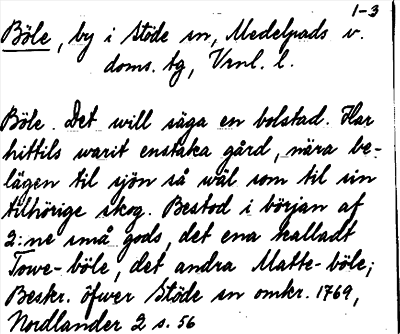 1-3
Böle, by i Stöde sn, Medelpads v.
doms. tg, Vrnl. l.
Böle. Det will säga en bolstad. Har
hittils warit enstaka gård, nära be-
lägen til sjön så wäl som til sin
tilhörige skog. Bestod i början af
2:ne små gods, det ena kalladt
Towe-böle, det andra Matte-böle;
Beskr. öfwer Stöde sn omkr. 1769,
Nordlander 2 s. 56